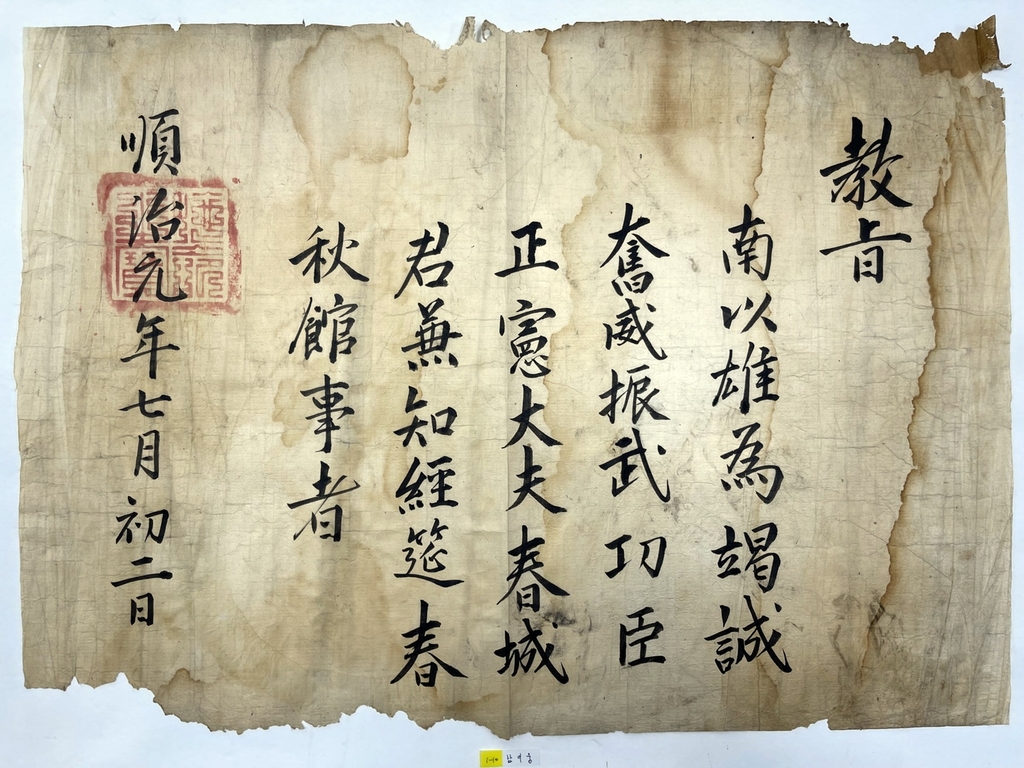 教旨
南以雄為竭誠
奮威振武功臣
正憲大夫春城
君兼知經筵春
秋館事者
順治元年七月初二日
1-10 남이웅